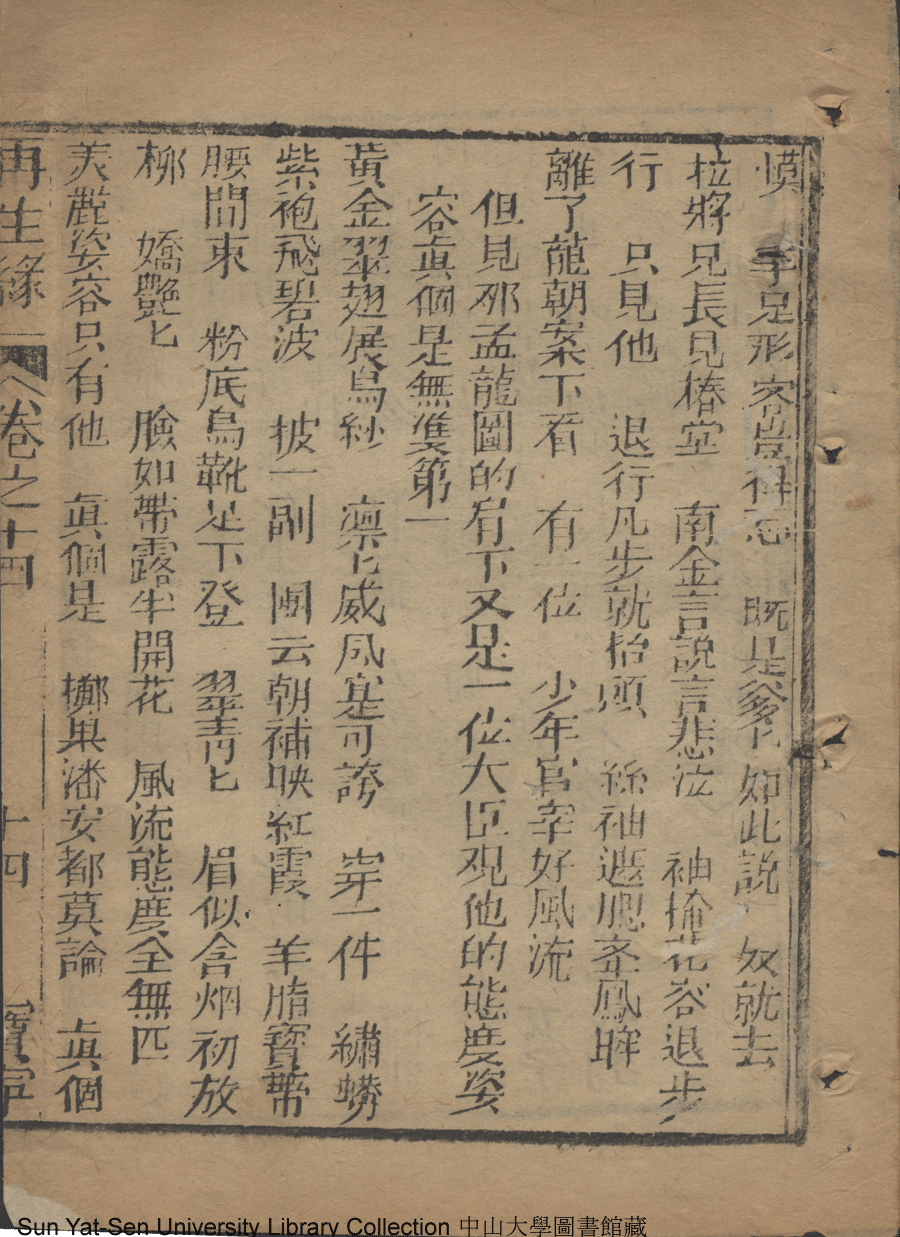 憤　手足形容豈得忘　既是爹匕如此說　奴就去
拉將兄長見椿堂　南金言說言悲泣　袖掩花容退步
行　只見他　退行凡步就抬頭　絲袖遮腮鳳眸
離了龍朝案下看　有一位　少年官宰好風流
但見那孟龍圖的肩下又是一位大臣观他的態度姿
容眞個是無雙第一
黃金翠翅展烏紗　凛匕威风寔可誇　穿一件　繡蟒
紫袍飛碧波　披一副　團云朝補映紅霞　羊脂寶帶
腰間束　粉底烏靴足下登　翠青匕　眉似含烟初放
柳　嬌艷匕　臉如帶露半開花　風流態度全無匹
美麗姿容只有他　眞個是　擲果潘安都莫論　眞個
再生緣　卷之十四　十四
Sun Yat-Sen University Library Collection 中山大學圖書館藏